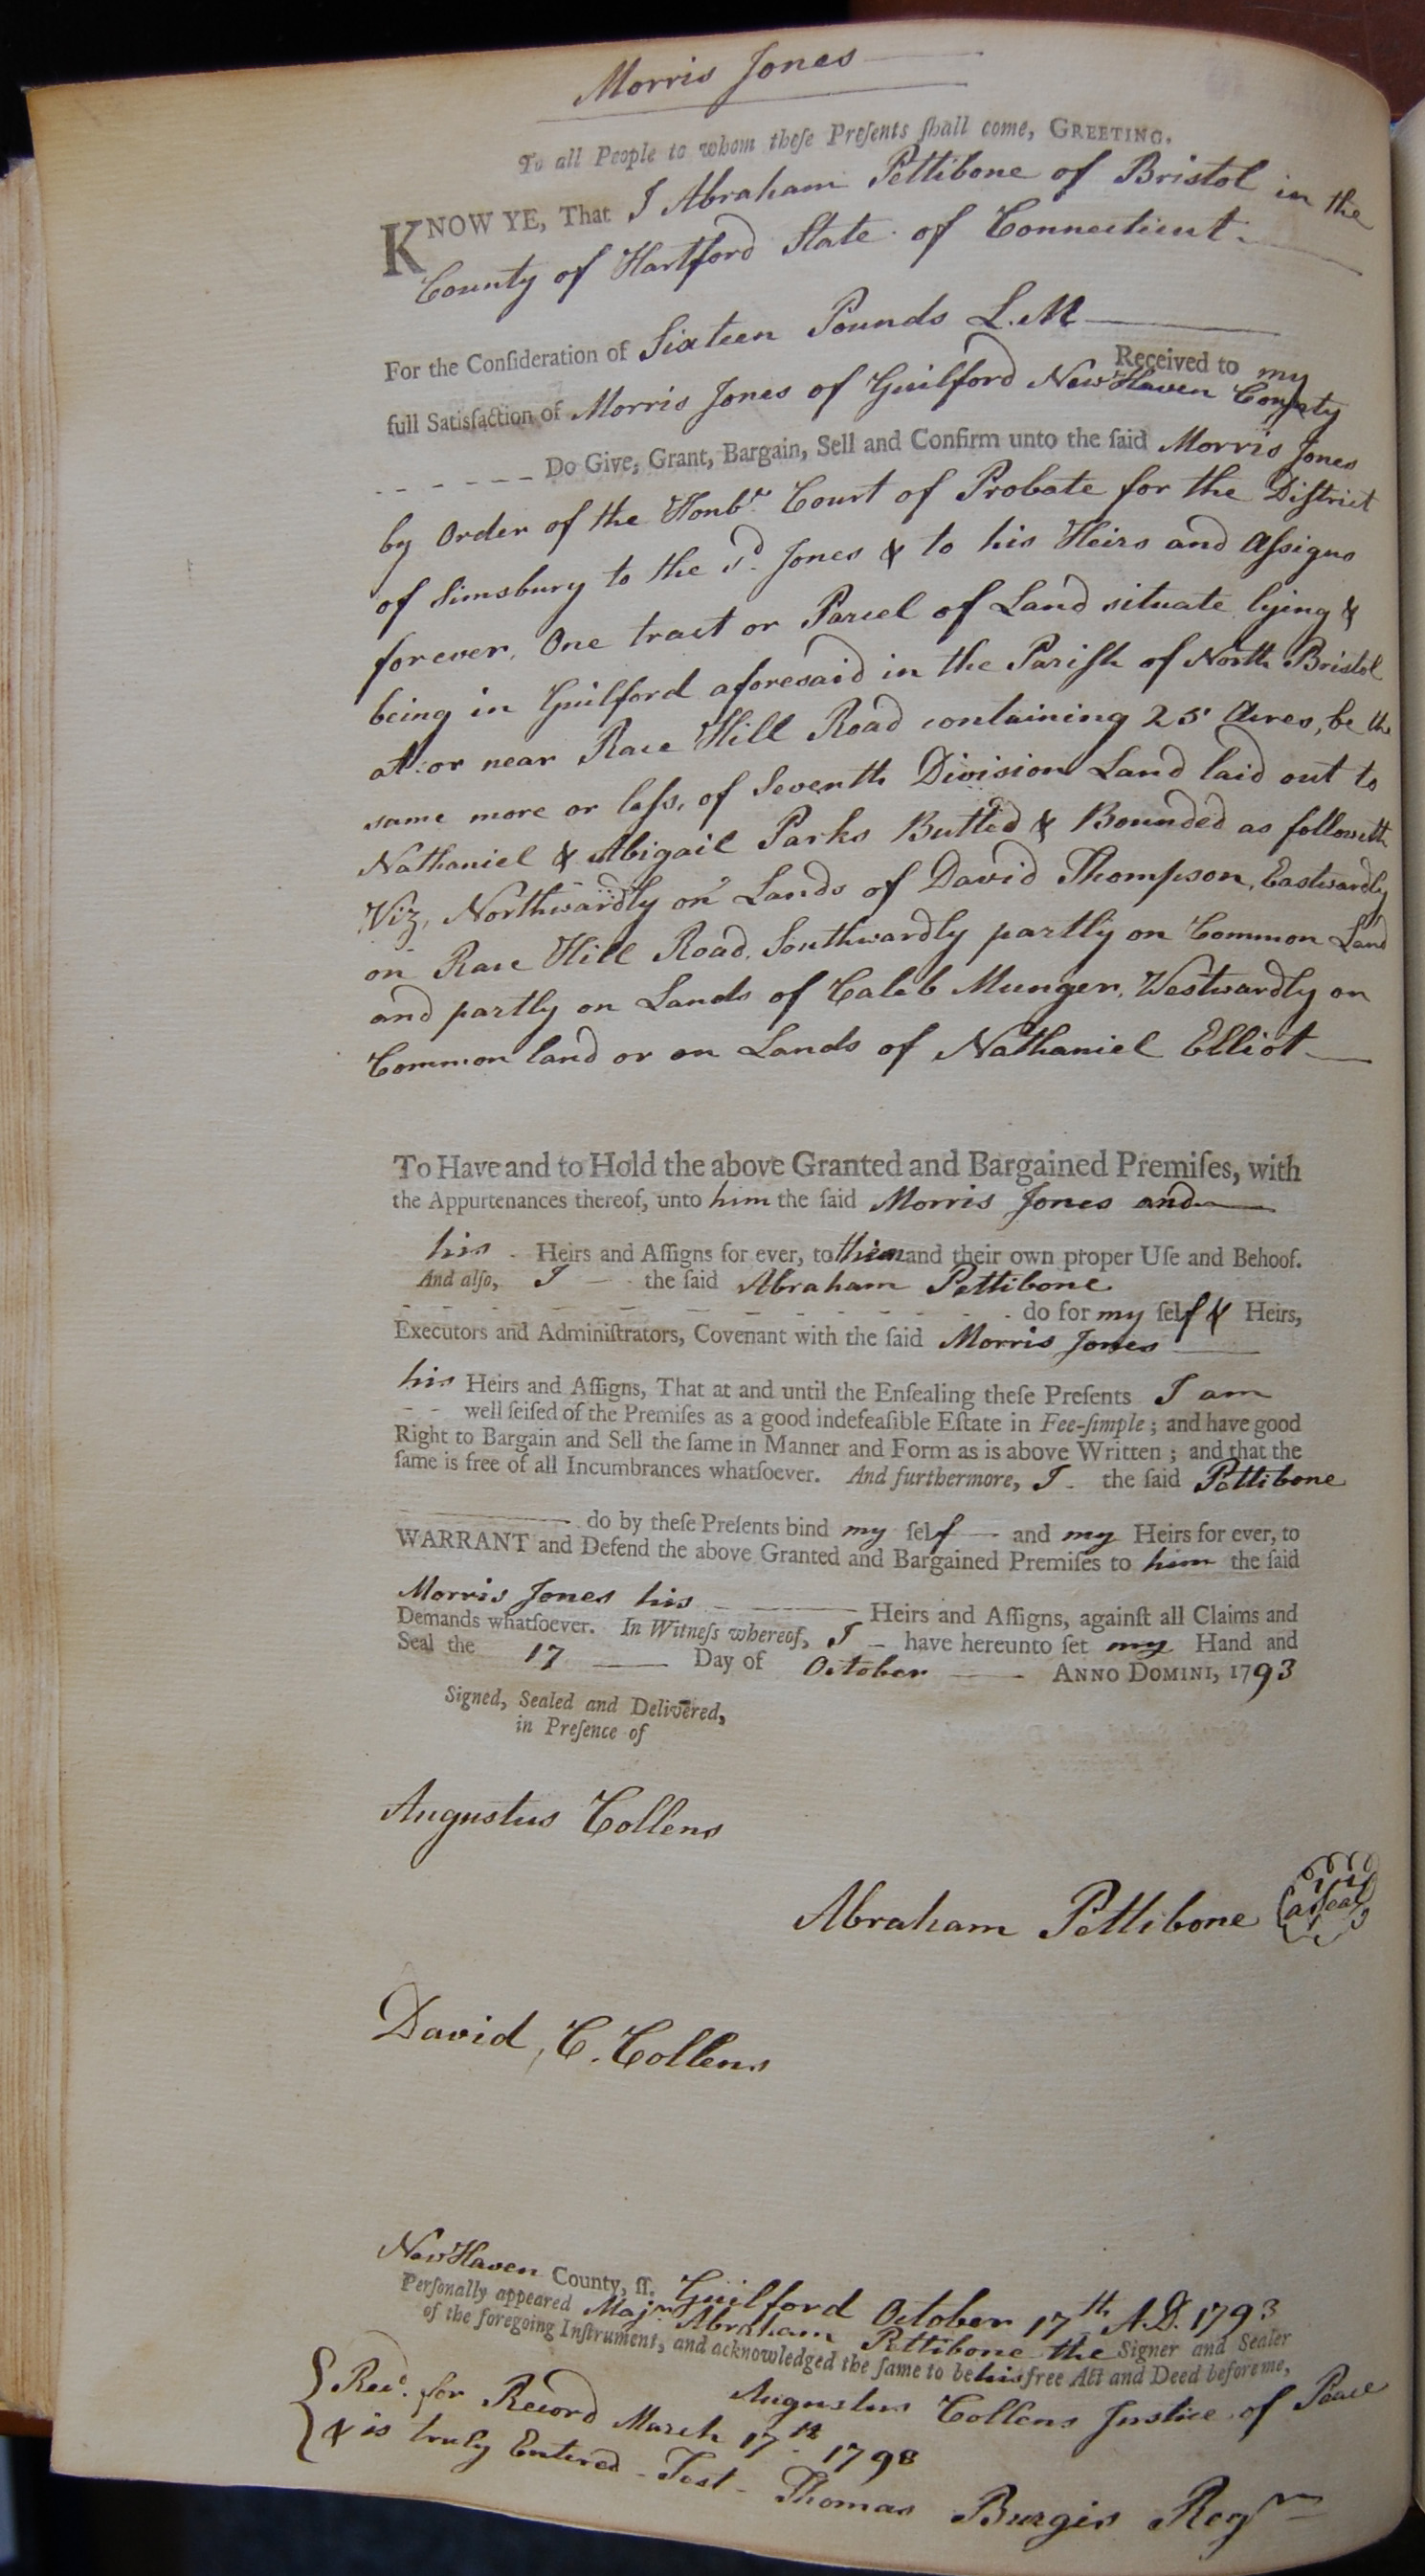 Morris Jones
To all People to whom theſe Preſents ſhall come, GREETING.
KNOW YE, That I Abraham Pettibone of Bristol in the
County of Hartford State of Connecticut
For the Conſideration of Sixteen Pounds L.M
Received to my
full Satisfaction of Morris Jones of Guilford New Haven County
Do Give, Grant, Bargain, Sell and Confirm unto the ſaid Morris Jones
by Order of the Honbe. Court of Probate for the Diſtrict
of Simsbury to the sd. Jones & to his Heirs and Aſsigns
forever, One tract or Parcel of Land situate lying &
being in Guilford aforesaid in the Pariſh of North Bristol
at or near Race Hill Road containing 25 Acres, be the
same more or leſs, of Seventh Division Land laid out to
Nathaniel & Abigail Parks Butted & Bounded as followeth
Viz, Northwardly on Lands of David Thompson, Eastwardly
on Race Hill Road, Southwardly partly on Common Land
and partly on Lands of Caleb Munger, Westwardly on
Common land or on Lands of Nathaniel Elliot
To Have and to Hold the above Granted and Bargained Premiſes, with
the Appurtenances thereof, unto him the ſaid Morris Jones and
his Heirs and Aſſigns for ever, to them and their own proper Uſe and Behoof.
And alſo, I the ſaid Abraham Pettibone
do for my ſelf & Heirs,
Executors and Adminiſtrators, Covenant with the ſaid Morris Jones
his Heirs and Aſſigns, That at and until the Enſealing theſe Preſents I am
well ſeiſed of the Premiſes as a good indefeaſible Eſtate in Fee-ſimple; and have good
Right to Bargain and Sell the ſame in Manner and Form as is above Written; and that the
ſame is free of all Incumbrances whatſoever. And furthermore, I the ſaid Pettibone
do by theſe Preſents bind my ſelf and my Heirs for ever, to
WARRANT and Defend the above Granted and Bargained Premiſes to him the ſaid
Morris Jones his Heirs and Aſſigns, againſt all Claims and
Demands whatſoever. In Witneſs whereof, I have hereunto ſet my Hand and
Seal the 17 Day of October ANNO DOMINI, 1793
Signed, Sealed and Delivered,
in Preſence of
Augustus Collens
Abraham Pettibone (a ſeal)
David, C. Collens
New Haven County, ſſ. Guilford October 17th A.D. 1793
Perſonally appeared Majr. Abraham Pettibone the Signer and Sealer
of the foregoing Inſtrument, and acknowledged the ſame to be his free Act and Deed before me,
Augustus Collens Justice of Peace
Recd. for Record March 17th 1798
& is truly Entered - Test - Thomas Burgis Regr